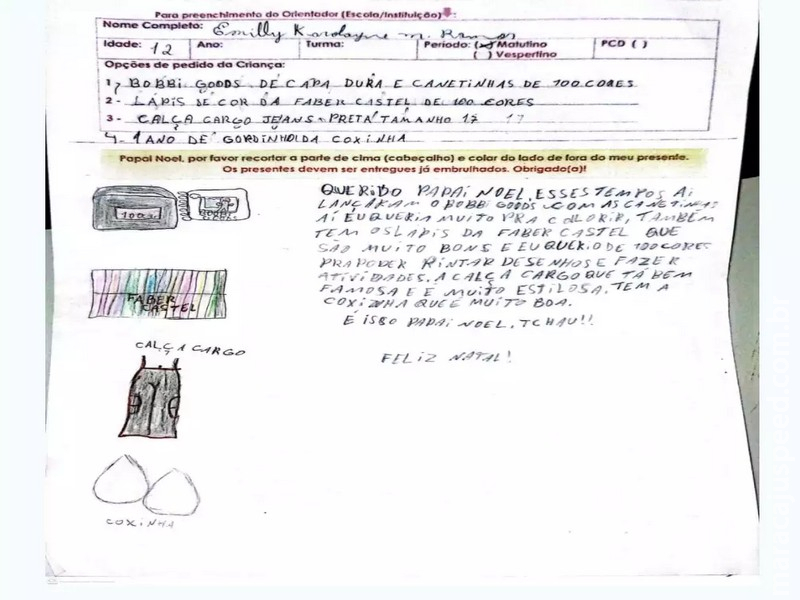 Para preenchimento do Orientador (Escola/Instituição):
Nome Completo: Emilly Karolayne M. Ramos
Idade: 12 Ano: Turma: Período: (x) Matutino PCD ( )
( ) Vespertino
Opções de pedido da Criança:
1, BOBBI GOODS DE CAPA DURA E CANETINHAS DE 100 CORES
2 - LÁPIS DE COR DA FABER CASTEL DE 100 CORES
3 - CALÇA CARGO JEANS - PRETA TAMANHO 17 17
4 - 1 ANO DE GORDINHO DA COXINHA
Papai Noel, por favor recortar a parte de cima (cabeçalho) e colar do lado de fora do meu presente.
Os presentes devem ser entregues já embrulhados. Obrigado(a)!
QUERIDO PAPAI NOEL, ESSES TEMPOS AI
LANÇARAM O BOBBI GOODS COM AS CANETINHAS
AÍ EU QUERIA MUITO PRA COLORIR, TAMBÉM
TEM OS LAPIS DA FABER CASTEL QUE
SÃO MUITO BONS E EU QUERIO DE 100 CORES
PRA PODER PINTAR DESENHOS E FAZER
ATIVIDADES. A CALÇA CARGO QUE TÁ BEM
FAMOSA E É MUITO ESTILOSA. TEM A
COXINHA QUE É MUITO BOA.
É ISSO PAPAI NOEL, TCHAU!!
FELIZ NATAL!
100
BOBBI
FABER
CASTEL
CALÇA CARGO
COXINHA